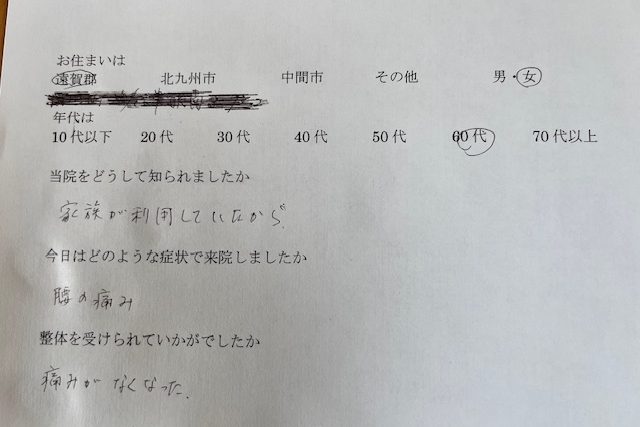 お住まいは
遠賀郡 北九州市 中間市 その他 男・女
年代は
10代以下 20代 30代 40代 50代 60代 70代以上
当院をどうして知られましたか
家族が利用していたから.
今日はどのような症状で来院しましたか
腰の痛み
整体を受けられていかがでしたか
痛みがなくなった.